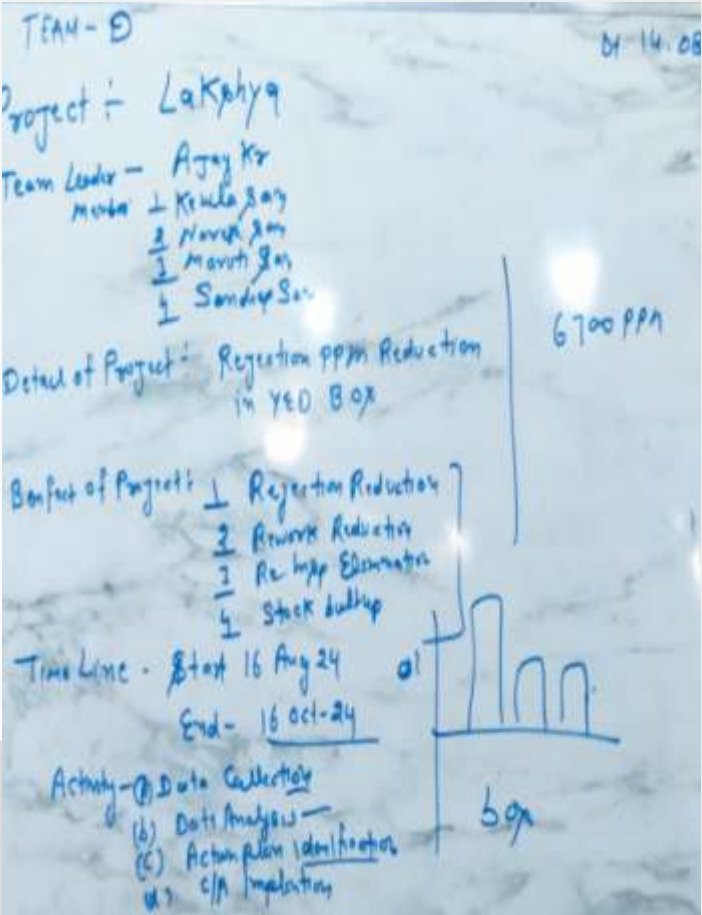 TEAM - D
Dt 14.08
Project :- Lakshya
Team Leader - Ajay Kr
Member 1 Kokila San
2 Naresh San
3 Maruti San
4 Sandip San
6700 PPM
Detail of Project : Rejection PPM Reduction
in YED BOX
Benfect of Project : 1 Rejection Reduction
2 Rework Reduction
3 Re Insp Elimination
4 Stock builtup
Time Line - Start 16 Aug 24
End - 16 Oct-24
Activity - (a) Data Collection
(b) Data Analysis -
(c) Action plan identification
(d) C/A
box